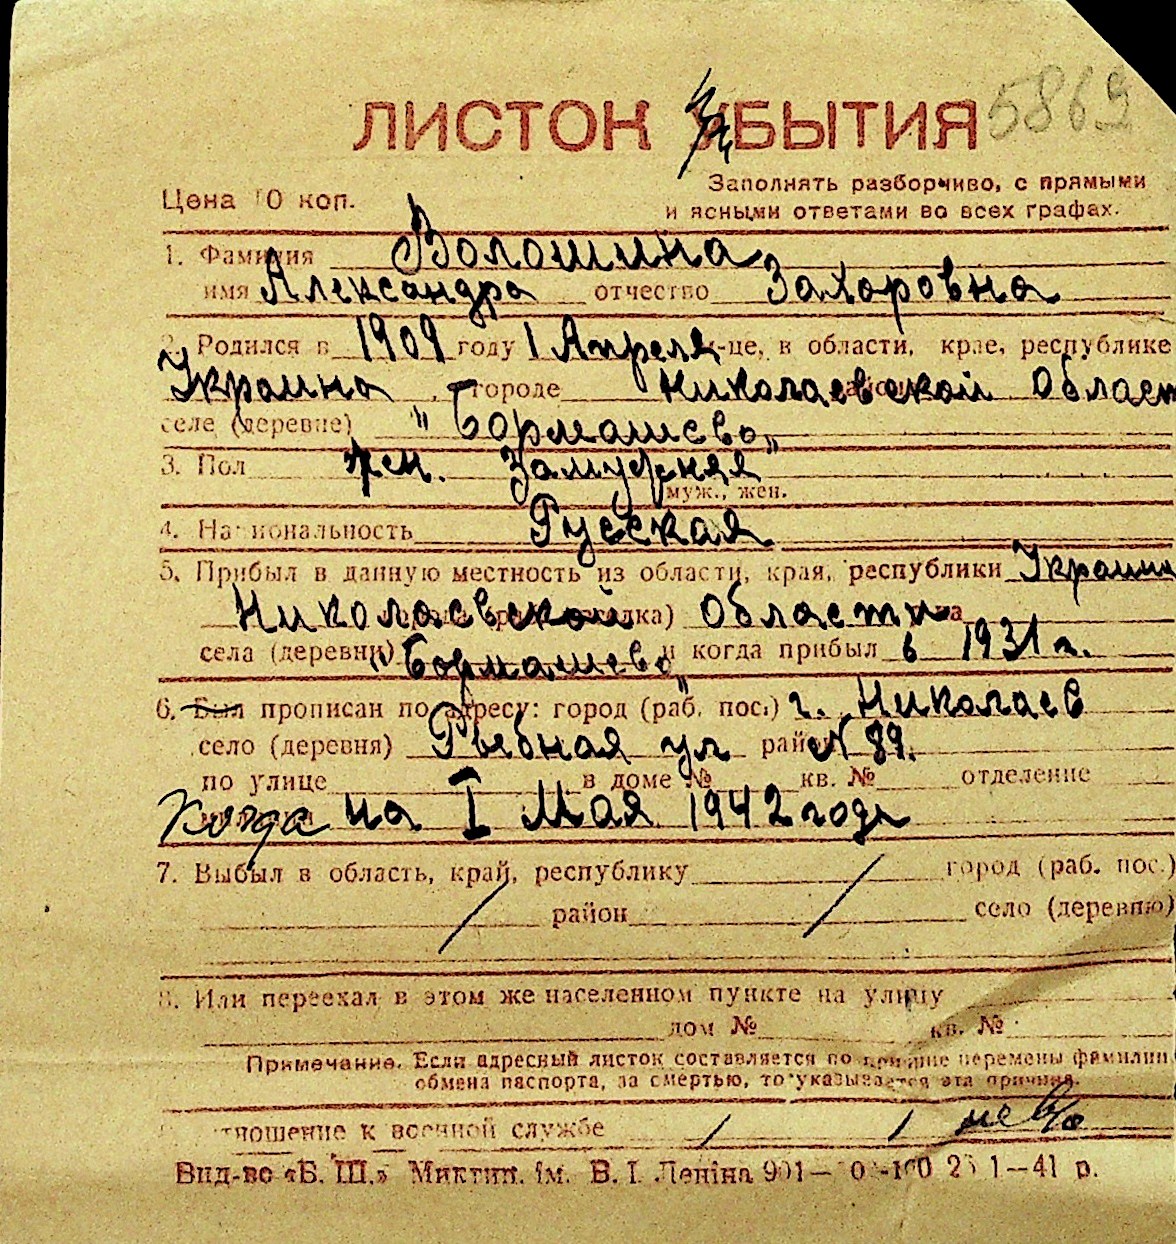 5869
ЛИСТОК УБЫТИЯ
Цена 10 коп.
Заполнять разборчиво, с прямыми
и ясными ответами во всех графах.
1. Фамилия Волошина
имя Александра отчество Захоровна
2. Родился в 1909 году 1 Апреля м-це, в области, крае, республике
Украина городе Николаевской Област
селе (деревне) "Бормашево"
3. Пол жен. Замужняя
муж., жен.
4. Национальность Русская
5. Прибыл в данную местность из области, края, республики Украины
Николаевской Области
села (деревни) "Бормашево" и когда прибыл в 1931 г.
6. Был прописан по адресу: город (раб. пос.) г. Николаев
село (деревня) Рыбная ул район N 89.
по улице в доме № кв. № отделение
когда на I Мая 1942 года
7. Выбыл в область, край, республику город (раб. пос.)
район село (деревню)
8. Или переехал в этом же населенном пункте на улицу
дом № кв. №
Примечание. Если адресный листок составляется по причине перемены фамилии
обмена паспорта, за смертью, то указывается эта причина.
отношение к военной службе не в/о
Вид-во «Б. Ш.» Миктип. ім. В. І. Леніна 901— 1—41 р.